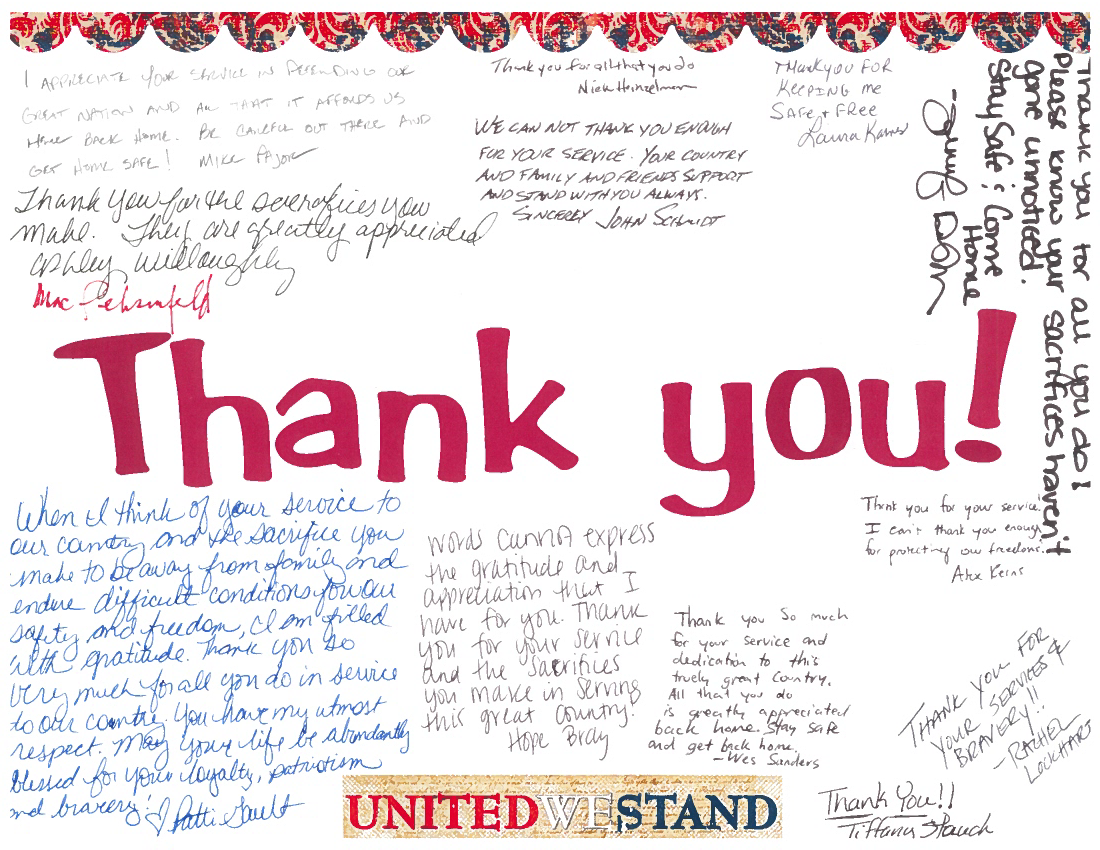 I APPRECIATE YOUR SERVICE IN DEFENDING OUR
GREAT NATION AND ALL THAT IT AFFORDS US
HERE BACK HOME. BE CAREFUL OUT THERE AND
GET HOME SAFE! MIKE PAJOR
Thank you for the sacrafices you
make. They are greatly appreciated
Ashley Willoughby
Mac
Thank you for all that you do
Nick Heinzelman
WE CAN NOT THANK YOU ENOUGH
FOR YOUR SERVICE. YOUR COUNTRY
AND FAMILY AND FRIENDS SUPPORT
AND STAND WITH YOU ALWAYS.
SINCERELY JOHN SCHMIDT
THANK YOU FOR
KEEPING me
SAFE + FREE
Launa
Thank you for all you do!
Please know your sacrifices haven't
gone unnoticed.
Stay Safe & Come
Home
Thank you!
When I think of your service to
our country and the sacrifice you
make to be away from family and
endure difficult conditions for our
safety and freedom, I am filled
with gratitude. Thank you so
very much for all you do in service
to our country. You have my utmost
respect. May your life be abundantly
blessed for your loyalty, patriotism
and bravery! Patti Gault
Words cannot express
the gratitude and
appreciation that I
have for you. Thank
you for your service
and the sacrifices
you make in serving
this great country.
Hope Bray
Thank you so much
for your service and
dedication to this
truely great Country.
All that you do
is greatly appreciated
back home. Stay safe
and get back home.
-Wes Sanders
Thank you for your service.
I can't thank you enough
for protecting our freedoms.
Alex Kerns
THANK YOU FOR
YOUR SERVICES &
BRAVERY!!
-RACHEL
LOCKHART
Thank You!!
Tiffany
UNITED WE STAND